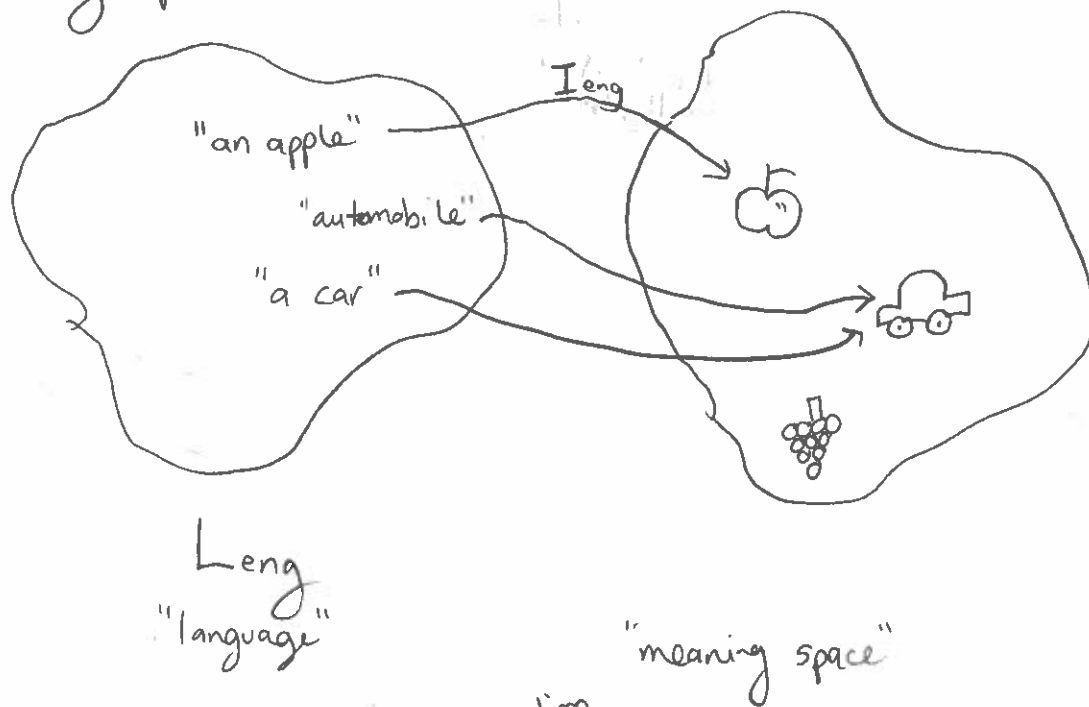 I eng
"an apple"
"automobile"
"a car"
Leng
"language"
"meaning space"